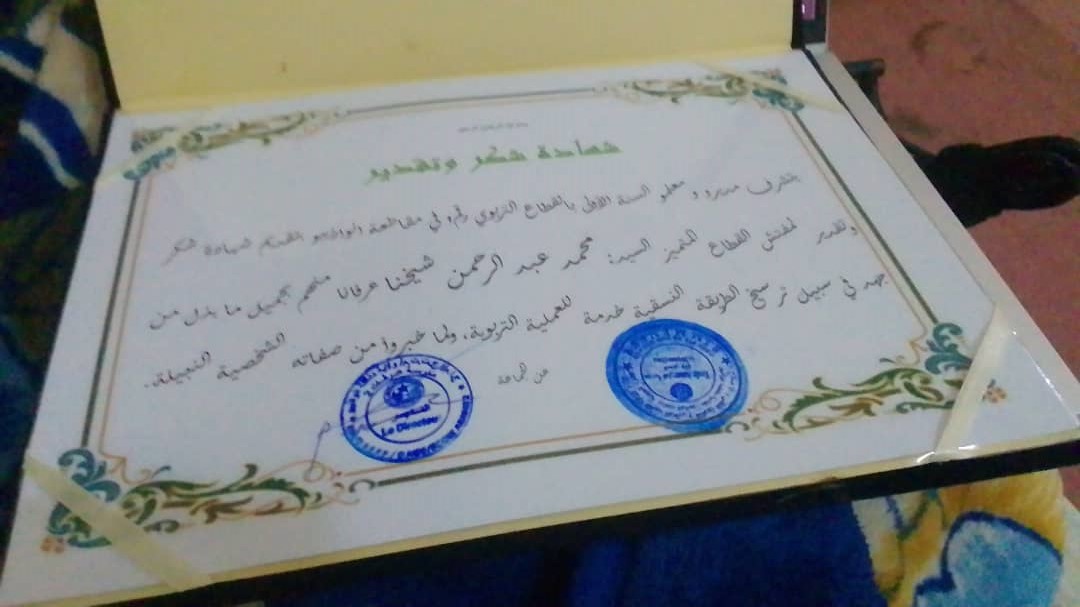 شهادة شكر وتقدير
يتشرف مديرو و معلمو السنة الأولى بالقطاع التربوي رقم في مقاطعة بتقديم شهادة شكر
وتقدير لمفتش القطاع المتميز السيد: محمد عبد الرحمن شيخنا عرفانا منهم بجميل ما بذل من
جهد في سبيل ترسيخ الطريقة النسقية خدمة للعملية التربوية، ولما خبروا من صفاته الشخصية النبيلة.
عن الجماعة
المدير
Le Directeur